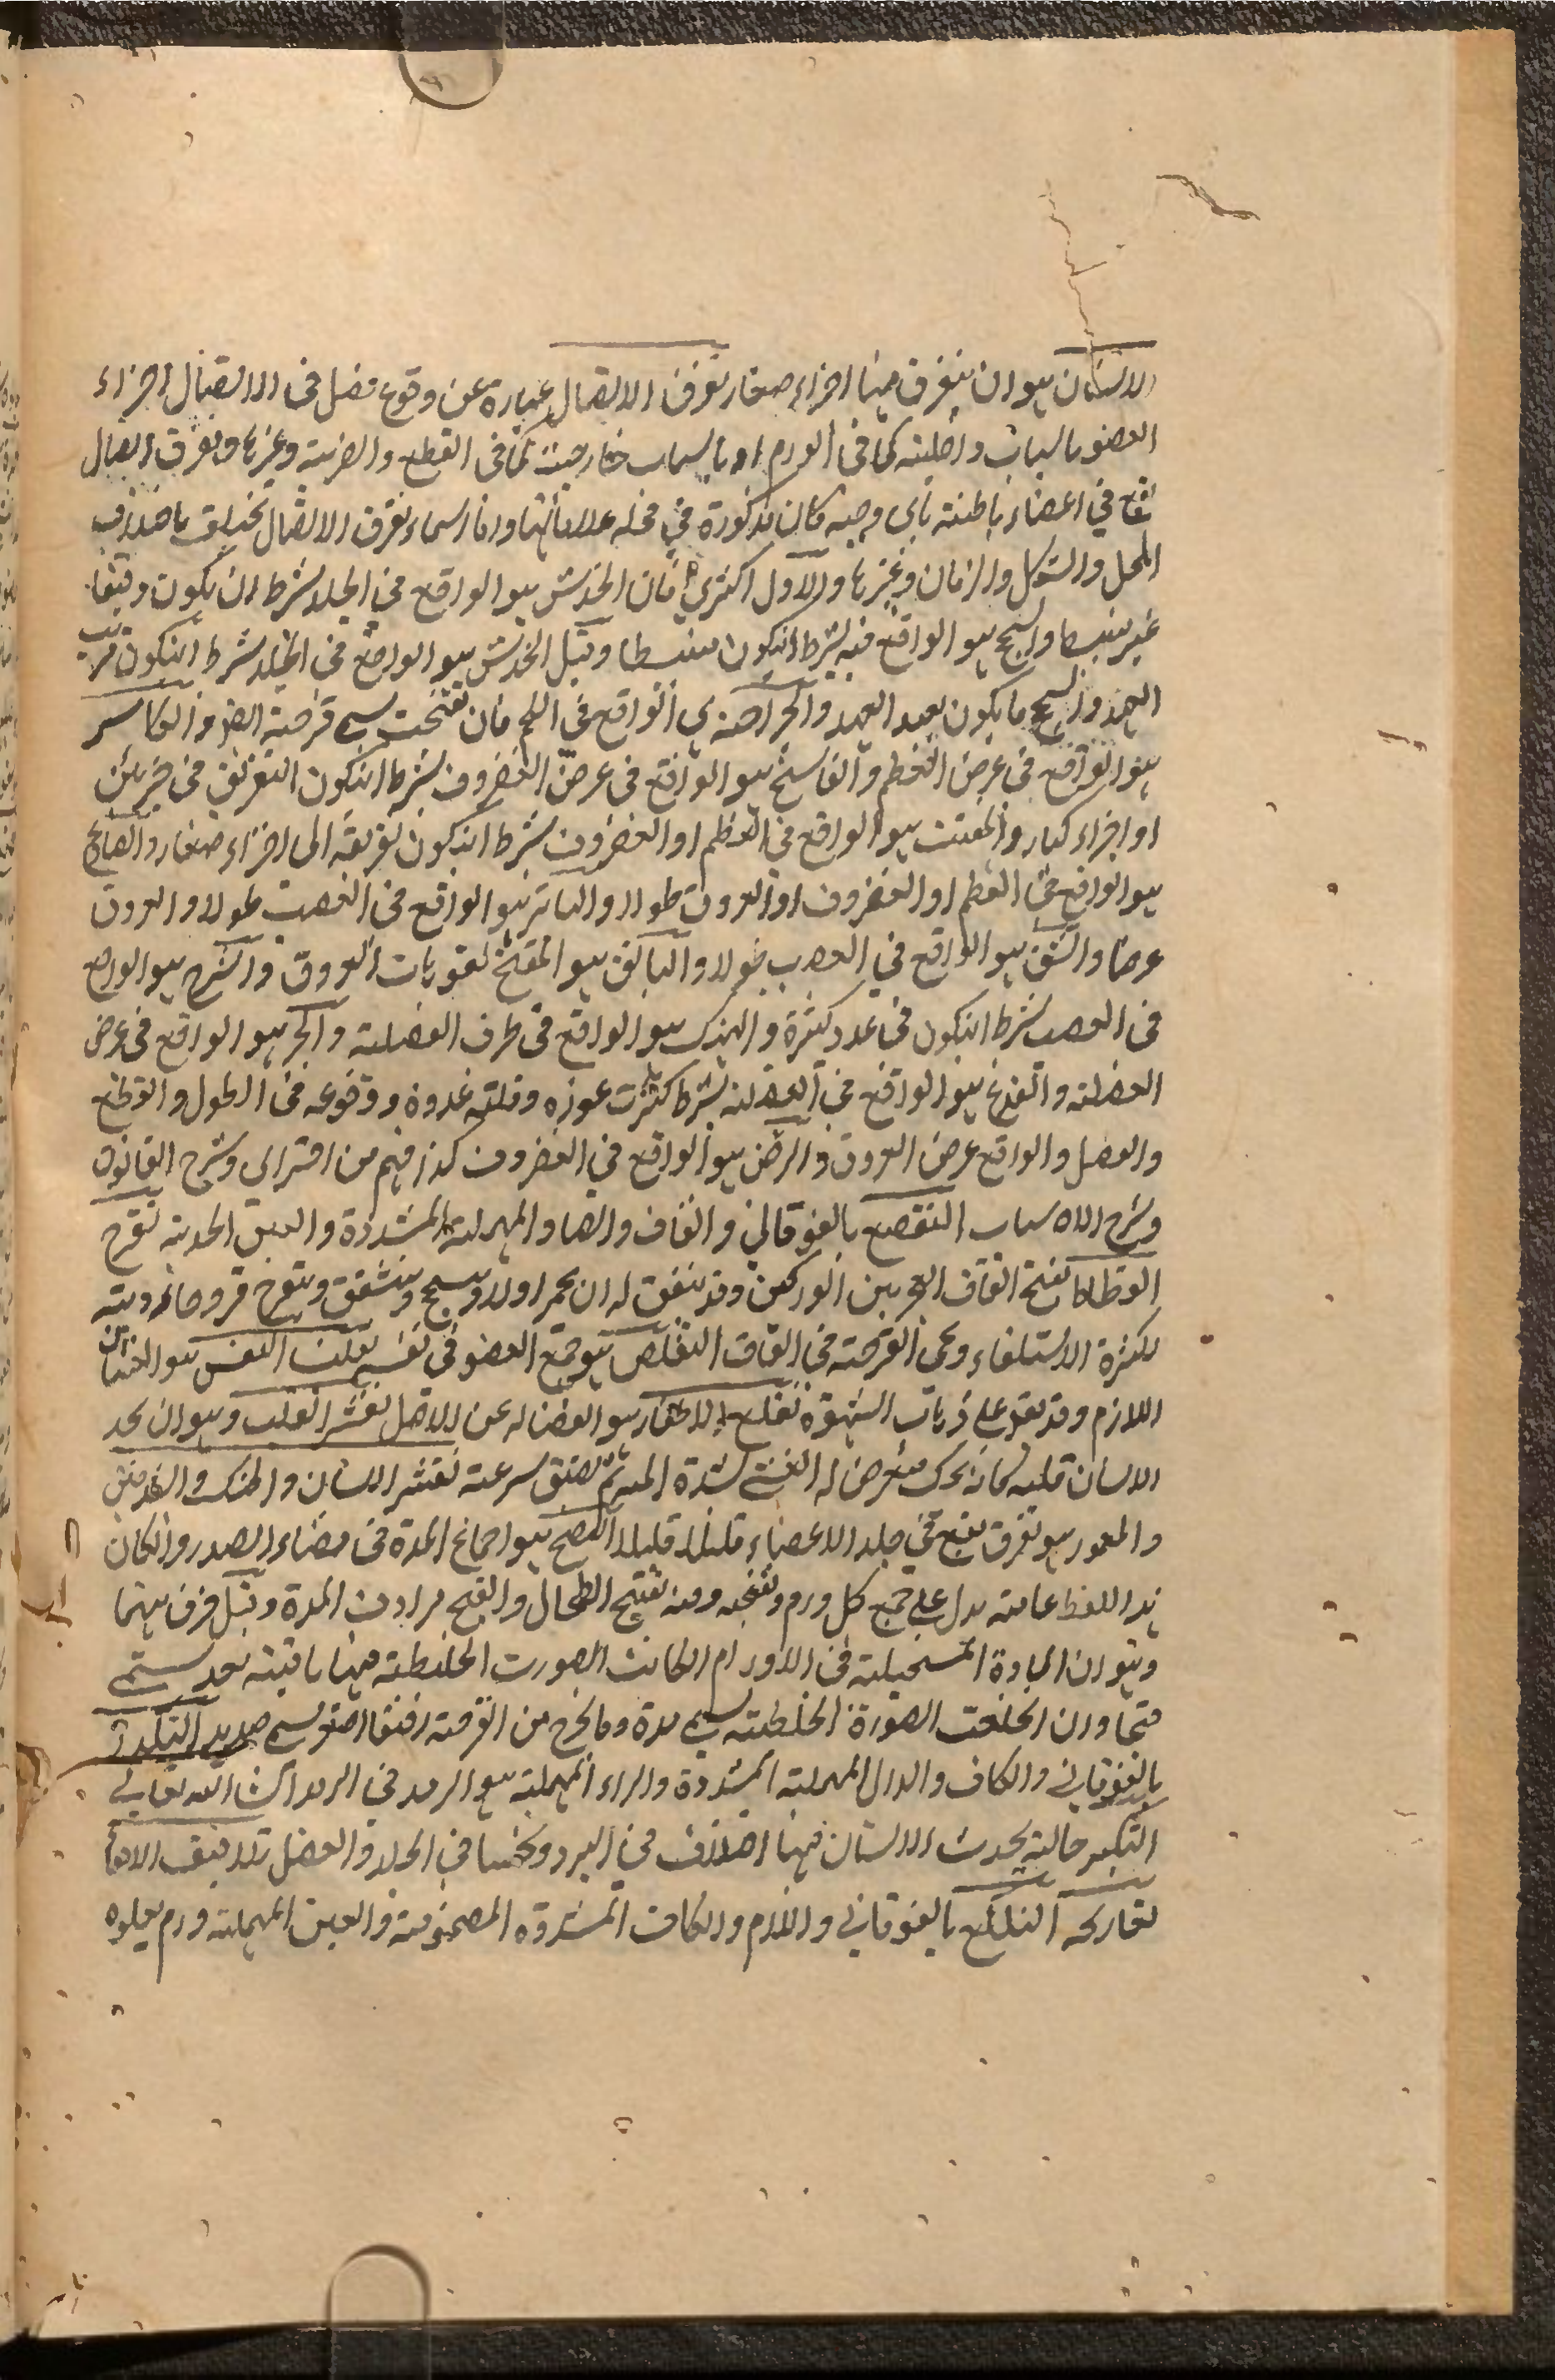 الاسنان هو ان يتفرق منها اجزاء صغار تفرق الاتصال عبارة عن وقوع فصل فى الاتصال اجزاء
العضو باسباب داخلية كما فى الورم او باسباب خارجية كما فى القطع والضربة وغيرها وتفرق اتصال
يقع في اعضاء باطنة باى وجه كان مذكورة في محله علاماتها واما اسماء تفرق الاتصال تختلف باختلاف
المحل والشكل والزمان وغيرها والاول اكثري فان الخدش هو الواقع في الجلد بشرط ان يكون دقيقا
غير منبسط والسحج هو الواقع فيه بشرط انيكون منبسطا وقيل الخدش هو الواقع في الجلد بشرط انيكون قريب
العهد والسحج ما يكون بعيد العهد والجراحة هي الواقع في اللحم فان تقيحت يسمى قرحة ايضا والكاسر
هو الواقع في عرض العظم والفاسخ هو الواقع فى عرض الغضروف بشرط انيكون التفرق في جزئين
او اجزاء كبار والمفتت هو الواقع في العظم او الغضروف بشرط انيكون تفريقه الى اجزاء صغار والصادع
هو الواقع في العظم او الغضروف او العروق طولا والباتر هو الواقع في العصب طولا والعروق
عرضا والشق هو الواقع في العصب طولا والباثق هو المفتح لفوهات العروق والشدخ هو الواقع
فى العصب بشرط انيكون فى عدد كثيرة والهتك هو الواقع فى طرف العضلة والجز هو الواقع فى عرض
العضلة والفدغ هو الواقع في العضلة بشرط كثرت غوره وقلة عدده ووقوعه في الطول والقطع
والفصل والواقع عرض العروق والرض هو الواقع في الغضروف كذا فهم من اقسرائي وشرح القانون
وشرح الاسباب التقصع بالفوقاني والقاف والصاد المهملة المشددة والعين الحدبة تقرح
القطاة بفتح القاف القرح بين الوركين وقد يتفق له ان يحمر اولا ويسحج ويتشقق ويتقرح قروحا ردية
لكثرة الاستلقاء ويجى القرحة في القاف التقلص هو جمع العضو فى نفسه تقلب النفس هو الغثيان
اللازم وقد يقع على ذهاب الشهوة تقلع الاظفار هو انفصاله عن الاصل تقشر القلب وهو ان يجد
الانسان قلبه كانه يحرك فيعرض له الغشي لشدة الم ثم يفيق سرعة تقشر اللسان والحنك والشدقين
والعمور هو تفرق يقع في جلد الاعضاء قليلا قليلا التقيح هو اجماع المدة في فضاء الصدر وانكان
هذا اللفظ عامة يدل على جمع كل ورم ونضجه ومنه تقيح الطحال والقيح مرادف المدة وقيل فرق بينهما
وهو ان المادة المستحيلة في الاورام ان كانت الصورت الخلطية فيها باقية بعد يسمى
قيحا وان انخلعت الصورة الخلطية يسمى مدة وما يخرج من القرحة رقيقا اصفر يسمى صديد التكدر
بالفوقاني والكاف والدال المهملة المشددة والراء المهملة هو الرمد في الرمد انشا الله تعالى
التكسر حالة يحدث الانسان فيها اختلاف في البرد ونخسا في الجلد والعضل تلافيف الامعا
لفائفه التلكع بالفوقاني واللام والكاف المشددة المضمومة والعين المهملة ورم يعلوه